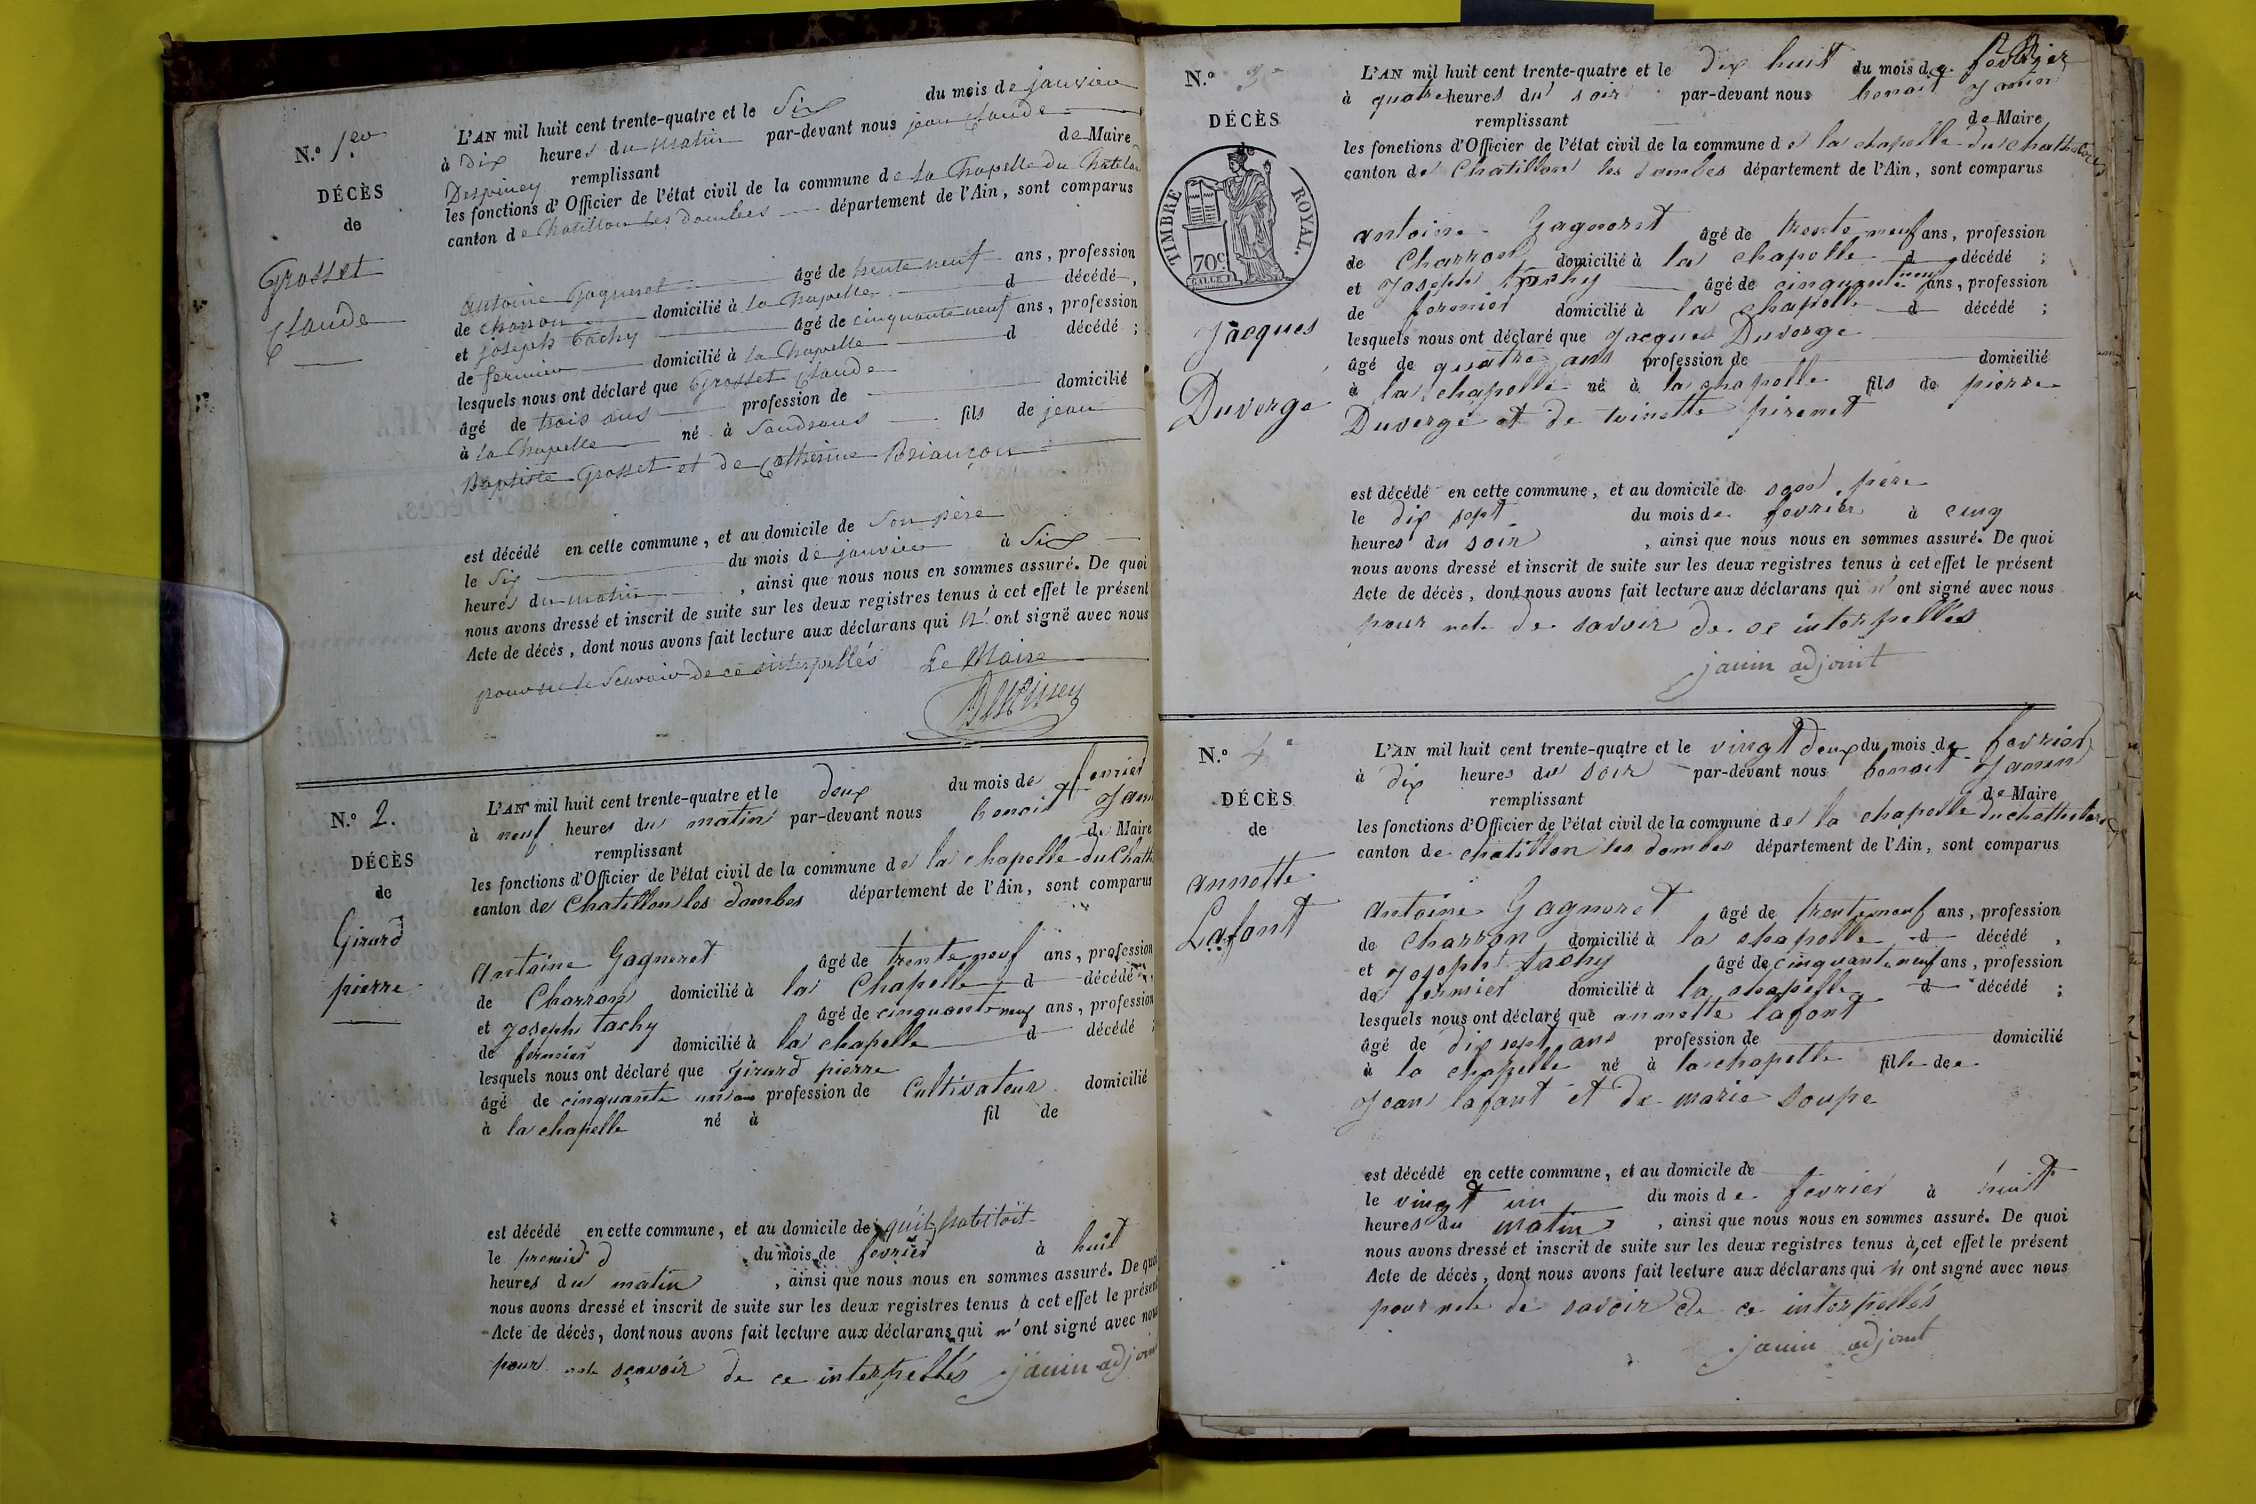 N.º 1.er
DÉCÈS
de
Grosset
Claude
L'AN mil huit cent trente-quatre et le Six du mois de janvier
à dix heures du matin par-devant nous jean Claude
Despiney remplissant de Maire
les fonctions d'Officier de l'état civil de la commune de la Chapelle Du Chatelard
canton de Chatillon les dombes département de l'Ain, sont comparus
antoine Gagneret âgé de trente neuf ans, profession
de charron domicilié à la Chapelle d décédé,
et joseph Tachy âgé de cinquante neuf ans, profession
de fermier domicilié à la Chapelle d décédé;
lesquels nous ont déclaré que Grosset Claude
âgé de trois ans profession de domicilié
à la Chapelle né à Sandrans fils de jean
Baptiste Grosset et de Catherine Briançon
est décédé en cette commune, et au domicile de Son père
le Six du mois de janvier à Six
heures du matin, ainsi que nous nous en sommes assuré. De quoi
nous avons dressé et inscrit de suite sur les deux registres tenus à cet effet le présent
Acte de décès, dont nous avons fait lecture aux déclarans qui n'ont signé avec nous
pour ne le Scavoir de ce interpellés Le Maire
Despiney
N.º 2.
DÉCÈS
de
Girard
pierre
L'AN mil huit cent trente-quatre et le deux du mois de fevrier
à neuf heures du matin par-devant nous benoit Jani
remplissant de Maire
les fonctions d'Officier de l'état civil de la commune de la chapelle du Chath
canton de Chatillon les dombes département de l'Ain, sont comparus
Antoine Gagneret âgé de trente neuf ans, profession
de Charron domicilié à la Chapelle d décédé,
et joseph tachy âgé de cinquante neuf ans, profession
de fermier domicilié à la chapelle d décédé;
lesquels nous ont déclaré que Girard pierre
âgé de cinquante un ans profession de Cultivateur domicilié
à la chapelle né à fil de
est décédé en cette commune, et au domicile de qu'il habitoit
le premier d du mois de fevrier à huit
heures du matin, ainsi que nous nous en sommes assuré. De quoi
nous avons dressé et inscrit de suite sur les deux registres tenus à cet effet le présent
Acte de décès, dont nous avons fait lecture aux déclarans qui n'ont signé avec nous
pour ne le sçavoir de ce interpellés janin adjoin
N.º 3e
DÉCÈS
de
TIMBRE ROYAL.
70c.
Jacques
Duverge
L'AN mil huit cent trente-quatre et le dix huit du mois de fevrier
à quatre heures du soir par-devant nous benoit Janin
remplissant de Maire
les fonctions d'Officier de l'état civil de la commune de la chapelle du chathelard
canton de Chatillon les dombes département de l'Ain, sont comparus
antoine Gagneret âgé de trente neuf ans, profession
de Charron domicilié à la chapelle d décédé;
et joseph tachy âgé de cinquante neuf ans, profession
de fermier domicilié à la chapelle d décédé;
lesquels nous ont déclaré que jacques Duverge
âgé de quatre ans profession de domicilié
à la chapelle né à la chapelle fils de pierre
Duverge et de toinette pirenet
est décédé en cette commune, et au domicile de son père
le dix sept du mois de fevrier à cinq
heures du soir, ainsi que nous nous en sommes assuré. De quoi
nous avons dressé et inscrit de suite sur les deux registres tenus à cet effet le présent
Acte de décès, dont nous avons fait lecture aux déclarans qui n'ont signé avec nous
pour ne le de savoir de ce interpellés
janin adjoint
N.º 4e
DÉCÈS
de
annette
Lafont
L'AN mil huit cent trente-quatre et le vingt deux du mois de fevrier
à dix heures du soir par-devant nous benoit Janin
remplissant de Maire
les fonctions d'Officier de l'état civil de la commune de la chapelle du chathelard
canton de chatillon les dombes département de l'Ain, sont comparus
antoine Gagneret âgé de trente neuf ans, profession
de Charron domicilié à la chapelle d décédé,
et joseph tachy âgé de cinquante neuf ans, profession
de fermier domicilié à la chapelle d décédé;
lesquels nous ont déclaré que annette lafont
âgé de dix sept ans profession de domicilié
à la chapelle né à la chapelle fille de
jean lafont et de marie Soupe
est décédé en cette commune, et au domicile de
le vingt un du mois de fevrier à huit
heures du matin, ainsi que nous nous en sommes assuré. De quoi
nous avons dressé et inscrit de suite sur les deux registres tenus à cet effet le présent
Acte de décès, dont nous avons fait lecture aux déclarans qui n ont signé avec nous
pour ne le de savoir de ce interpellés
janin adjoint